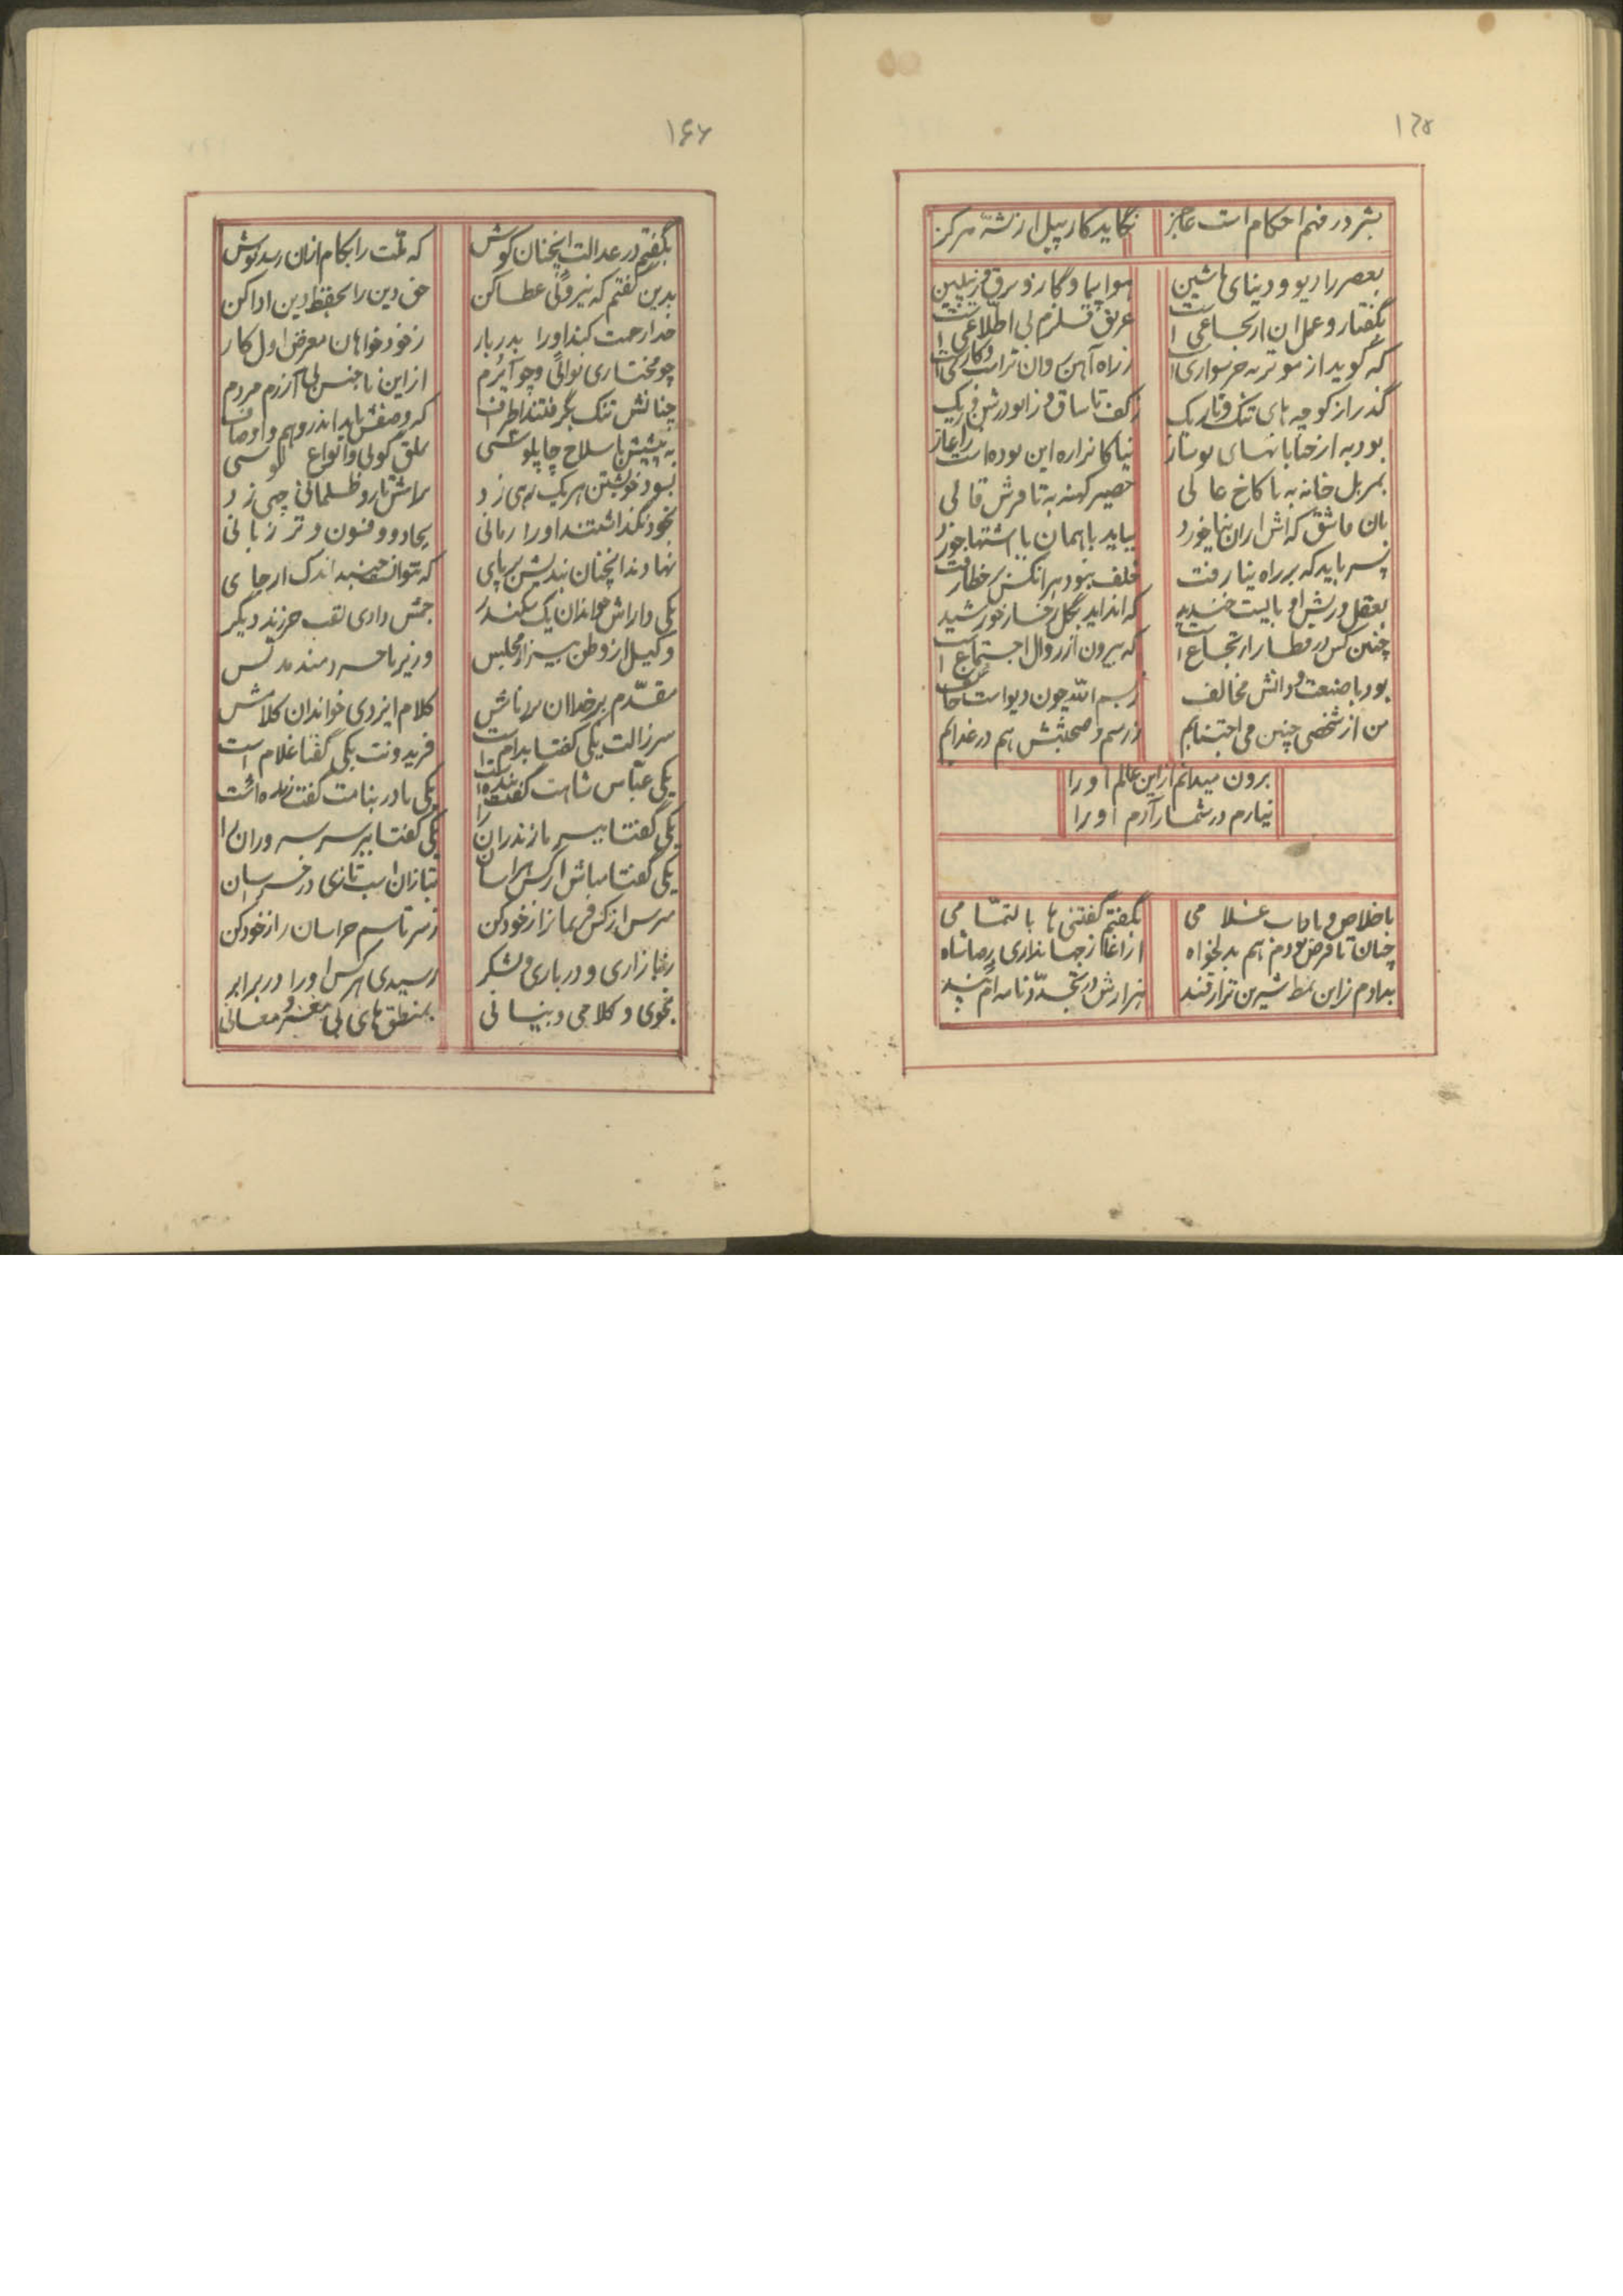 ۱۶۵
بشر در فهم احکام است عاجز
نگاید کار پیل از پشه هرگز
بعصر رادیو و دنیای ماشین
هواپیما و گاز و برق و زپلین
بگفتار و عمل ان ارتجاعی است
غریق قلزم بی اطلاعی است
که گوید از موتر به خر سواری
ز راه آهن
گذر از کوچه های تنگ و تاریک
ز کف تا ساق و زانو در
بود به از خیابانهای نوساز
نیاکانرا ره این بوده است
بهر بل خانه به با کاخ عالی
حصیر کهنه به تا فرش قالی
بان قاشق که اش ایران نیا خورد
بباید با همان با اشتها خورد
پسر باید که بر راه نیا رفت
خلف نبود هر انکس بر خطا رفت
بعقل و ریش او بایست خندید
که انداید بگل رخسار خورشید
چنین کس در قطار ارتجاع است
که بیرون از روال اجتماع است
بود با صنعت و دانش مخالف
ز بسم الله چون دیو است خائف
من از شخصی چنین می اجتنابم
ز رسم و صحبتش هم در عذابم
برون میدانم از این عالم او را
نیارم در شمار آدم او را
با خلاص و باداب غلامی
بگفتم گفتنی ها با لتمامی
چنان تا فرض بودم هم بدلخواه
از اغاز جهانداری رضاشاه
بدادم زاین نمط شیرین تر از قند
هنرارش در تجدد نامه ام پند
۱۶۶
بگفتم در عدالت اینچنان کوش
که ملت را بکام ازان رسد نوش
بدین گفتم که نیروئی عطا کن
حق دین را بحفظ دین ادا کن
خدا رحمت کند او را بدربار
ز خود خواهان معرض اول کار
چو مختاری نوائی و چو آیرم
از این نا جنس بی آزرم مردم
چنانش تنگ بگرفتند اطراف
که وصفش ناید اندر وهم و اوصاف
به پیشش با سلاح چاپلوسی
تملق گوئی و انواع لوسی
بسود خویشتن هر یک رهی زد
براش نارو ظلمانی چهی زد
بخود نگذاشتند او را زمانی
بجادو و فسون و تر زبانی
نهادند اینچنان بندیش بر پای
که نتوانست جنبید اندک از جای
یکی داراش خواندان یک سکندر
جمش دادی لقب خرزند دیگر
وکیل از وطن بیزار مجلس
وزیر ناخردمند مدنس
مقدم بر خدا ان برد نامش
کلام ایزدی خواندان کلامش
سر زالت یکی گفتا بدام است
فریدونت یکی گفتا غلام است
یکی عباس شاهت گفت بنده است
یکی نادر بنامت گفت زنده است
یکی گفتا ببر مازندران را
یکی گفتا ببر سر سروران را
یکی گفتا مباش از کس هراسان
بتازان اسب تازی در خراسان
مترس از کس فریمانرا از خود کن
ز سر تا سر خراسان را ز خود کن
ز بازاری و درباری و لشکر
رسیدی هر کس او را در برابر
بنحوی و کلامی و بیانی
بمنطق های بی مغز و معانی